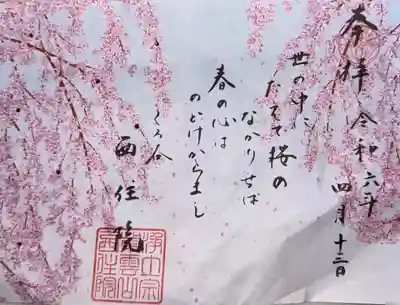 奉拝 令和六年
四月十三日
世の中に
たえて桜の
なかりせば
春の心は
のどけからまし
くろ谷
西住院
浄土宗
紫雲山
西住院